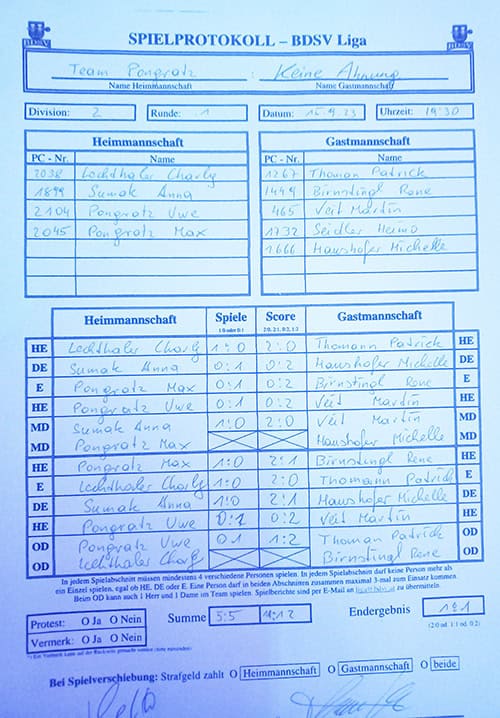 SPIELPROTOKOLL – BDSV Liga
BDSV BDSV
Team Pongratz : Keine Ahnung
Name Heimmannschaft Name Gastmannschaft
Division: 2 Runde: 1 Datum: 15.9.23 Uhrzeit: 19:30
Heimmannschaft Gastmannschaft
PC - Nr. Name PC - Nr. Name
2038 Lechthaler Charly 1267 Thoman Patrick
1899 Sumak Anna 1449 Birnstingl Rene
2104 Pongratz Uwe 465 Veit Martin
2045 Pongratz Max 1732 Seidler Heimo
1666 Haushofer Michelle
Heimmannschaft Spiele Score Gastmannschaft
1:0 oder 0:1 2:0, 2:1, 0:2, 1:2
HE Lechthaler Charly 1:0 2:0 Thomann Patrick HE
DE Sumak Anna 0:1 0:2 Haushofer Michelle DE
E Pongratz Max 0:1 0:2 Birnstingl Rene E
HE Pongratz Uwe 0:1 0:2 Veit Martin HE
MD Sumak Anna 1:0 2:0 Veit Martin MD
MD Pongratz Max Haushofer Michelle MD
HE Pongratz Max 1:0 2:1 Birnstingl Rene HE
E Lechthaler Charly 1:0 2:0 Thomann Patrick E
DE Sumak Anna 1:0 2:1 Haushofer Michelle DE
HE Pongratz Uwe 0:1 0:2 Veit Martin HE
OD Pongratz Uwe 0:1 1:2 Thoman Patrick OD
OD Lechthaler Charly Birnstingl Rene OD
In jedem Spielabschnitt müssen mindestens 4 verschiedene Personen spielen. In jedem Spielabschnitt darf keine Person mehr als
ein Einzel spielen, egal ob HE, DE oder E. Eine Person darf in beiden Abschnitten zusammen maximal 3-mal zum Einsatz kommen.
Beim OD kann auch 1 Herr und 1 Dame im Team spielen. Spielberichte sind per E-Mail an zu übermitteln.
Protest: O Ja O Nein Summe 5:5 Endergebnis 1:1
Vermerk: O Ja O Nein (2:0 od. 1:1 od. 0:2)
*) Ein Vermerk kann auf der Rückseite gemacht werden
Bei Spielverschiebung: Strafgeld zahlt O Heimmannschaft O Gastmannschaft O beide